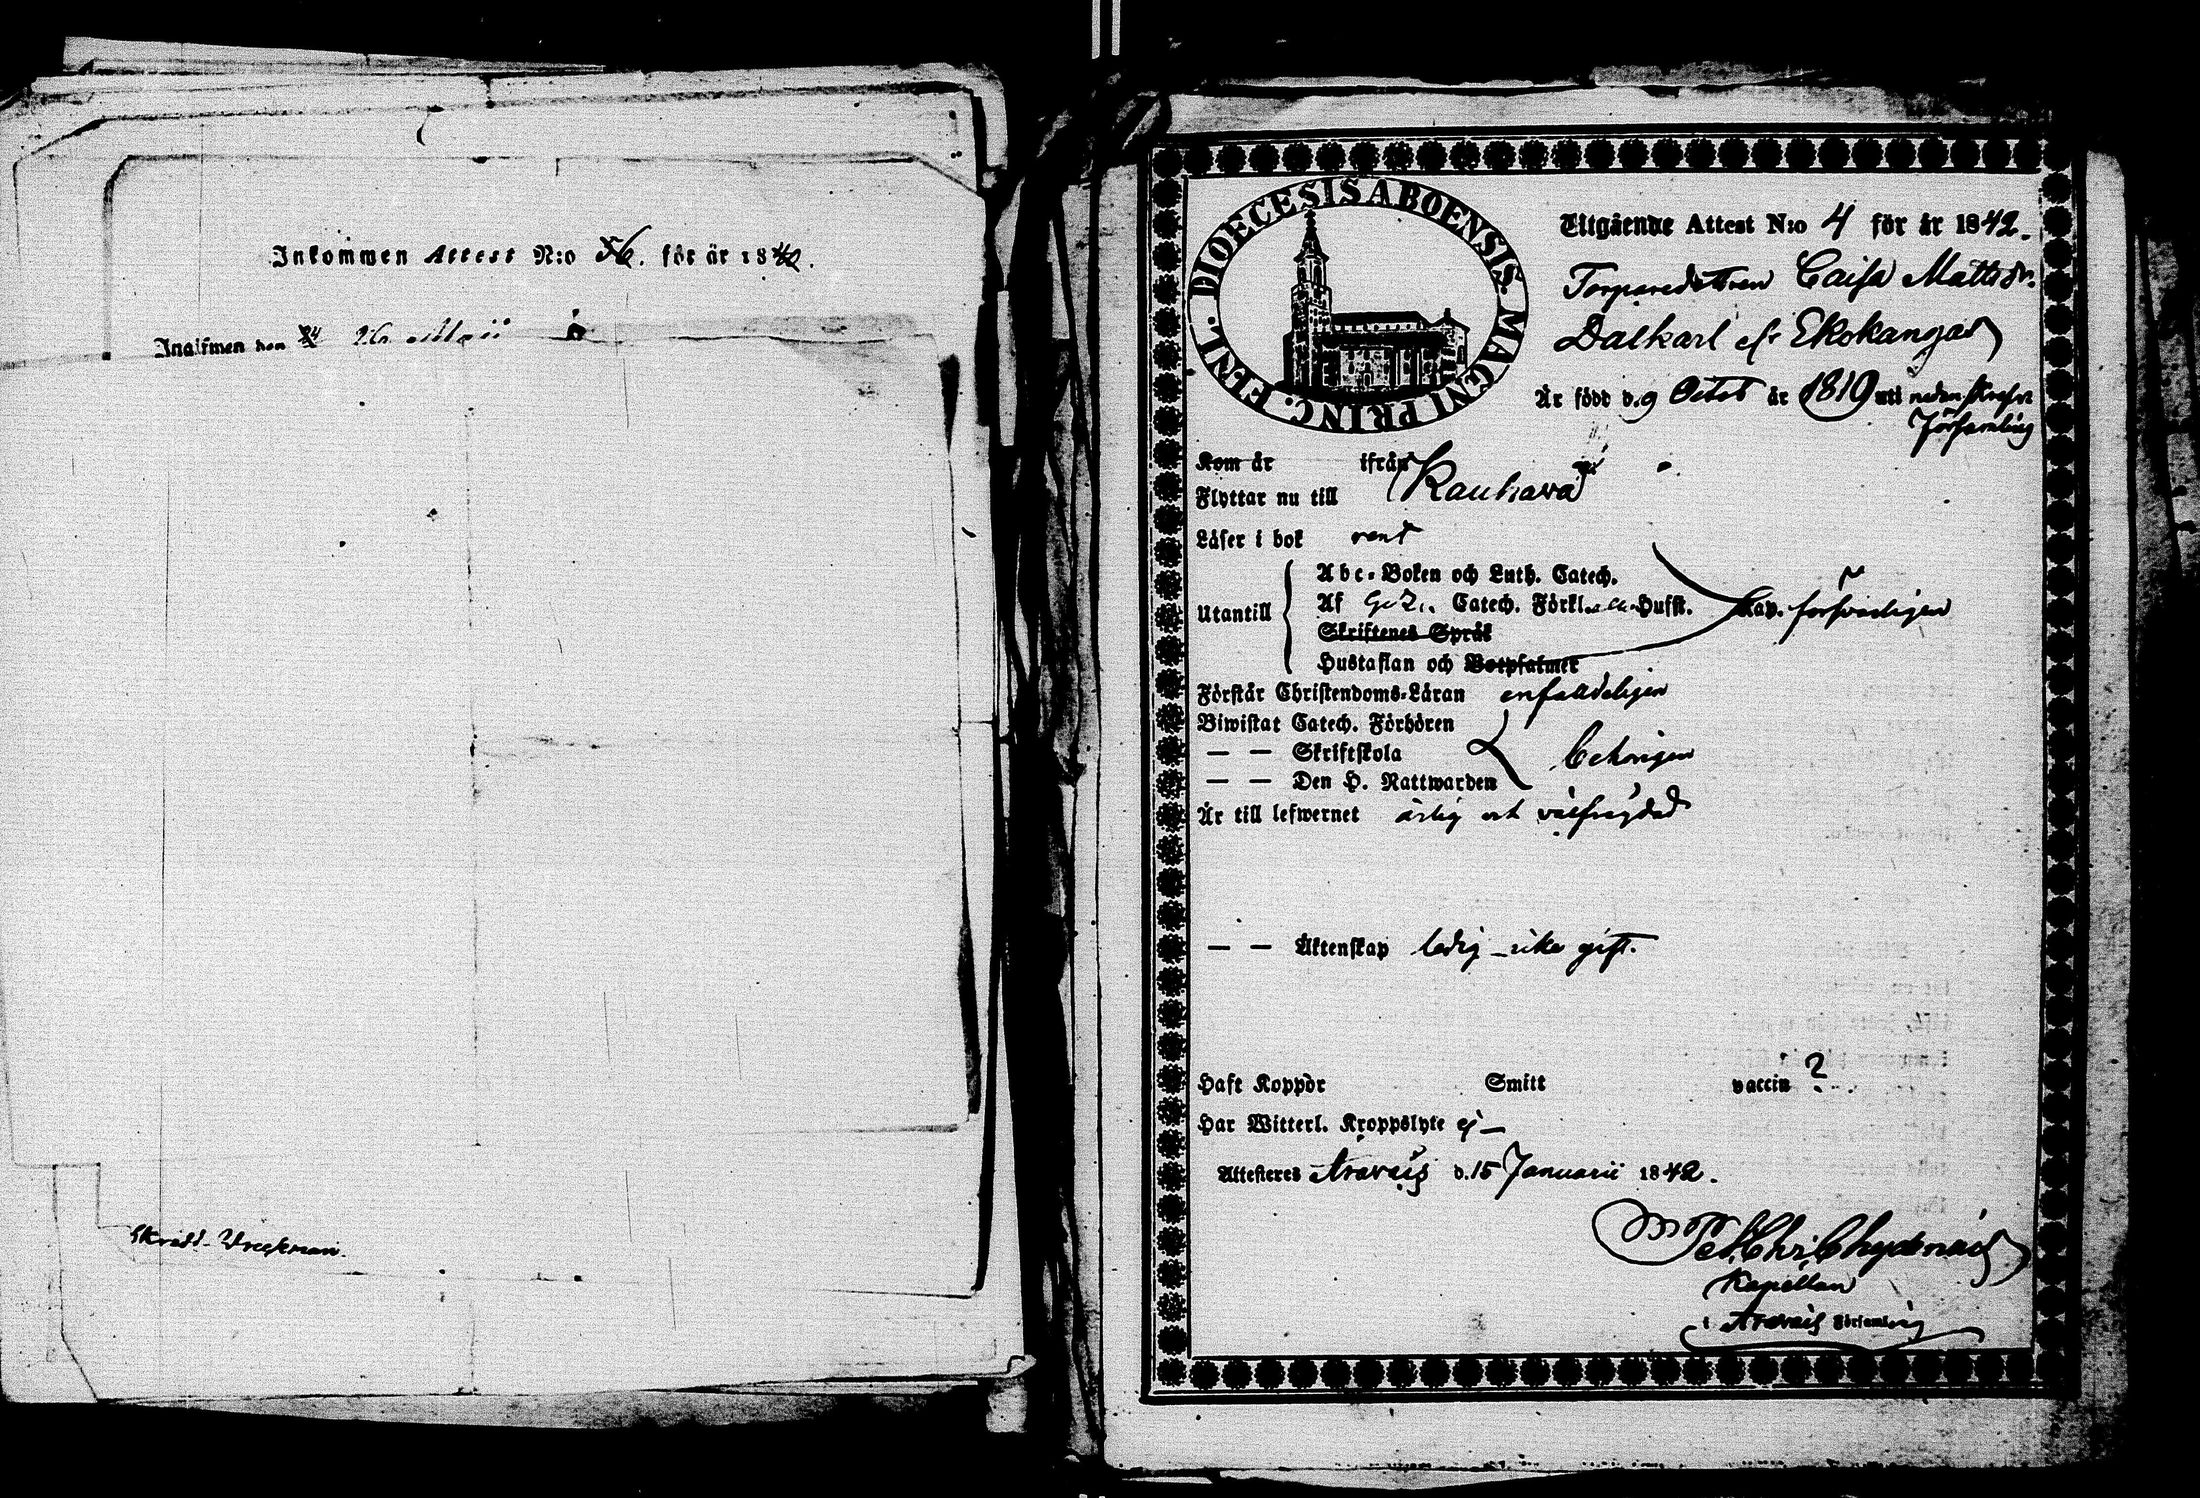 Inkommen Attest N:o 56. för år 1842.
Inlifwen den 26 Maii
DIOECESIS ABOENSIS. MAGNI PRINC. FINL.
Utgående Attest N:o 4 för år 1842.
Torparedottren Caisa Mattsdr.
Dalkarl ifr Ekokangas
Är född d. 9 Octob år 1819 uti
Församling
Kom år ifrån
Flyttar nu till Kauhava
Läser i bok rent
Utantill
Abc-Boken och Luth. Catech.
Af Catech. Förkl. Husfl.
Skriftenes Språk
Hustaflan och Botpsalmer
försvarligen
Förstår Christendoms-Läran enfalldeligen
Biwistat Catech. Förhören
— — Skriftskola
— — Den H. Nattwarden
behörigen
Är till lefwernet ärlig och välfrejdad
— — Äktenskap ledig – icke gift.
Haft Koppor Smitt vaccin ?
Har Witterl. Kroppslyte ej —
Attesteras Oravais d. 15 Januarii 1842.
Pet. Chr. Chydenius
Kapellan
i Oravais Församling